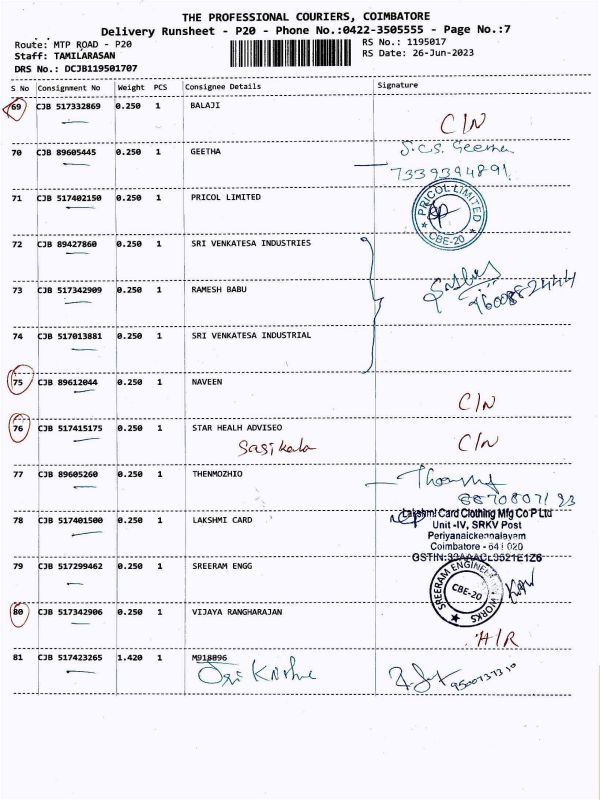 THE PROFESSIONAL COURIERS, COIMBATORE
Delivery Runsheet - P20 - Phone No.:0422-3505555 - Page No.:7
Route: MTP ROAD - P20
RS No.: 1195017
Staff: TAMILARASAN
RS Date: 26-Jun-2023
DRS No.: DCJB119501707
S No Consignment No Weight PCS Consignee Details Signature
69 CJB 517332869 0.250 1 BALAJI
C/N
70 CJB 89605445 0.250 1 GEETHA
S.C.S. Geetha
7339394891
71 CJB 517402150 0.250 1 PRICOL LIMITED
PRICOL LIMITED
CBE-20
72 CJB 89427860 0.250 1 SRI VENKATESA INDUSTRIES
73 CJB 517342909 0.250 1 RAMESH BABU
9600882444
74 CJB 517013881 0.250 1 SRI VENKATESA INDUSTRIAL
75 CJB 89612044 0.250 1 NAVEEN
C/N
76 CJB 517415175 0.250 1 STAR HEALH ADVISEO
Sasikala
C/N
77 CJB 89605260 0.250 1 THENMOZHIO
78 CJB 517401500 0.250 1 LAKSHMI CARD
Lakshmi Card Clothing Mfg Co P Ltd
Unit -IV, SRKV Post
Periyanaickenpalayam
Coimbatore - 641 020
79 CJB 517299462 0.250 1 SREERAM ENGG
SREERAM ENGINEERING WORKS
CBE-20
80 CJB 517342906 0.250 1 VIJAYA RANGHARAJAN
A/R
81 CJB 517423265 1.420 1 M918896
9500737310